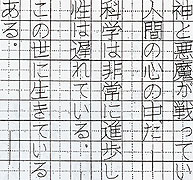 神と悪魔が戦ってい
人間の心の中だ―
科学は非常に進歩し
性は遅れている。
この世に生きている
ある。